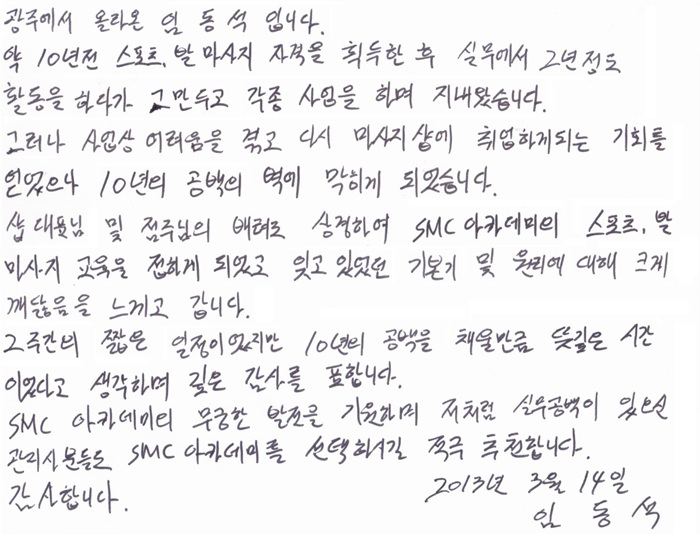 광주에서 올라온 임 동 석 입니다.
약 10년전 스포츠, 발 마사지 자격을 획득한 후 실무에서 2년정도
활동을 하다가 그만두고 각종 사업을 하며 지내왔습니다.
그러나 사업상 어려움을 겪고 다시 마사지 샵에 취업하게되는 기회를
얻었으나 10년의 공백의 벽에 막히게 되었습니다.
샵 대표님 및 점주님의 배려로 상경하여 SMC 아카데미의 스포츠, 발
마사지 교육을 접하게 되었고 잊고 있었던 기본기 및 원리에 대해 크게
깨닳음을 느끼고 갑니다.
2주간의 짧은 일정이었지만 10년의 공백을 채울만큼 뜻깊은 시간
이었다고 생각하며 깊은 감사를 표합니다.
SMC 아카데미의 무궁한 발전을 기원하며 저처럼 실무공백이 있으신
관리사분들도 SMC 아카데미를 선택하시길 적극 추천합니다.
감사합니다. 2013년 3월 14일
임 동 석